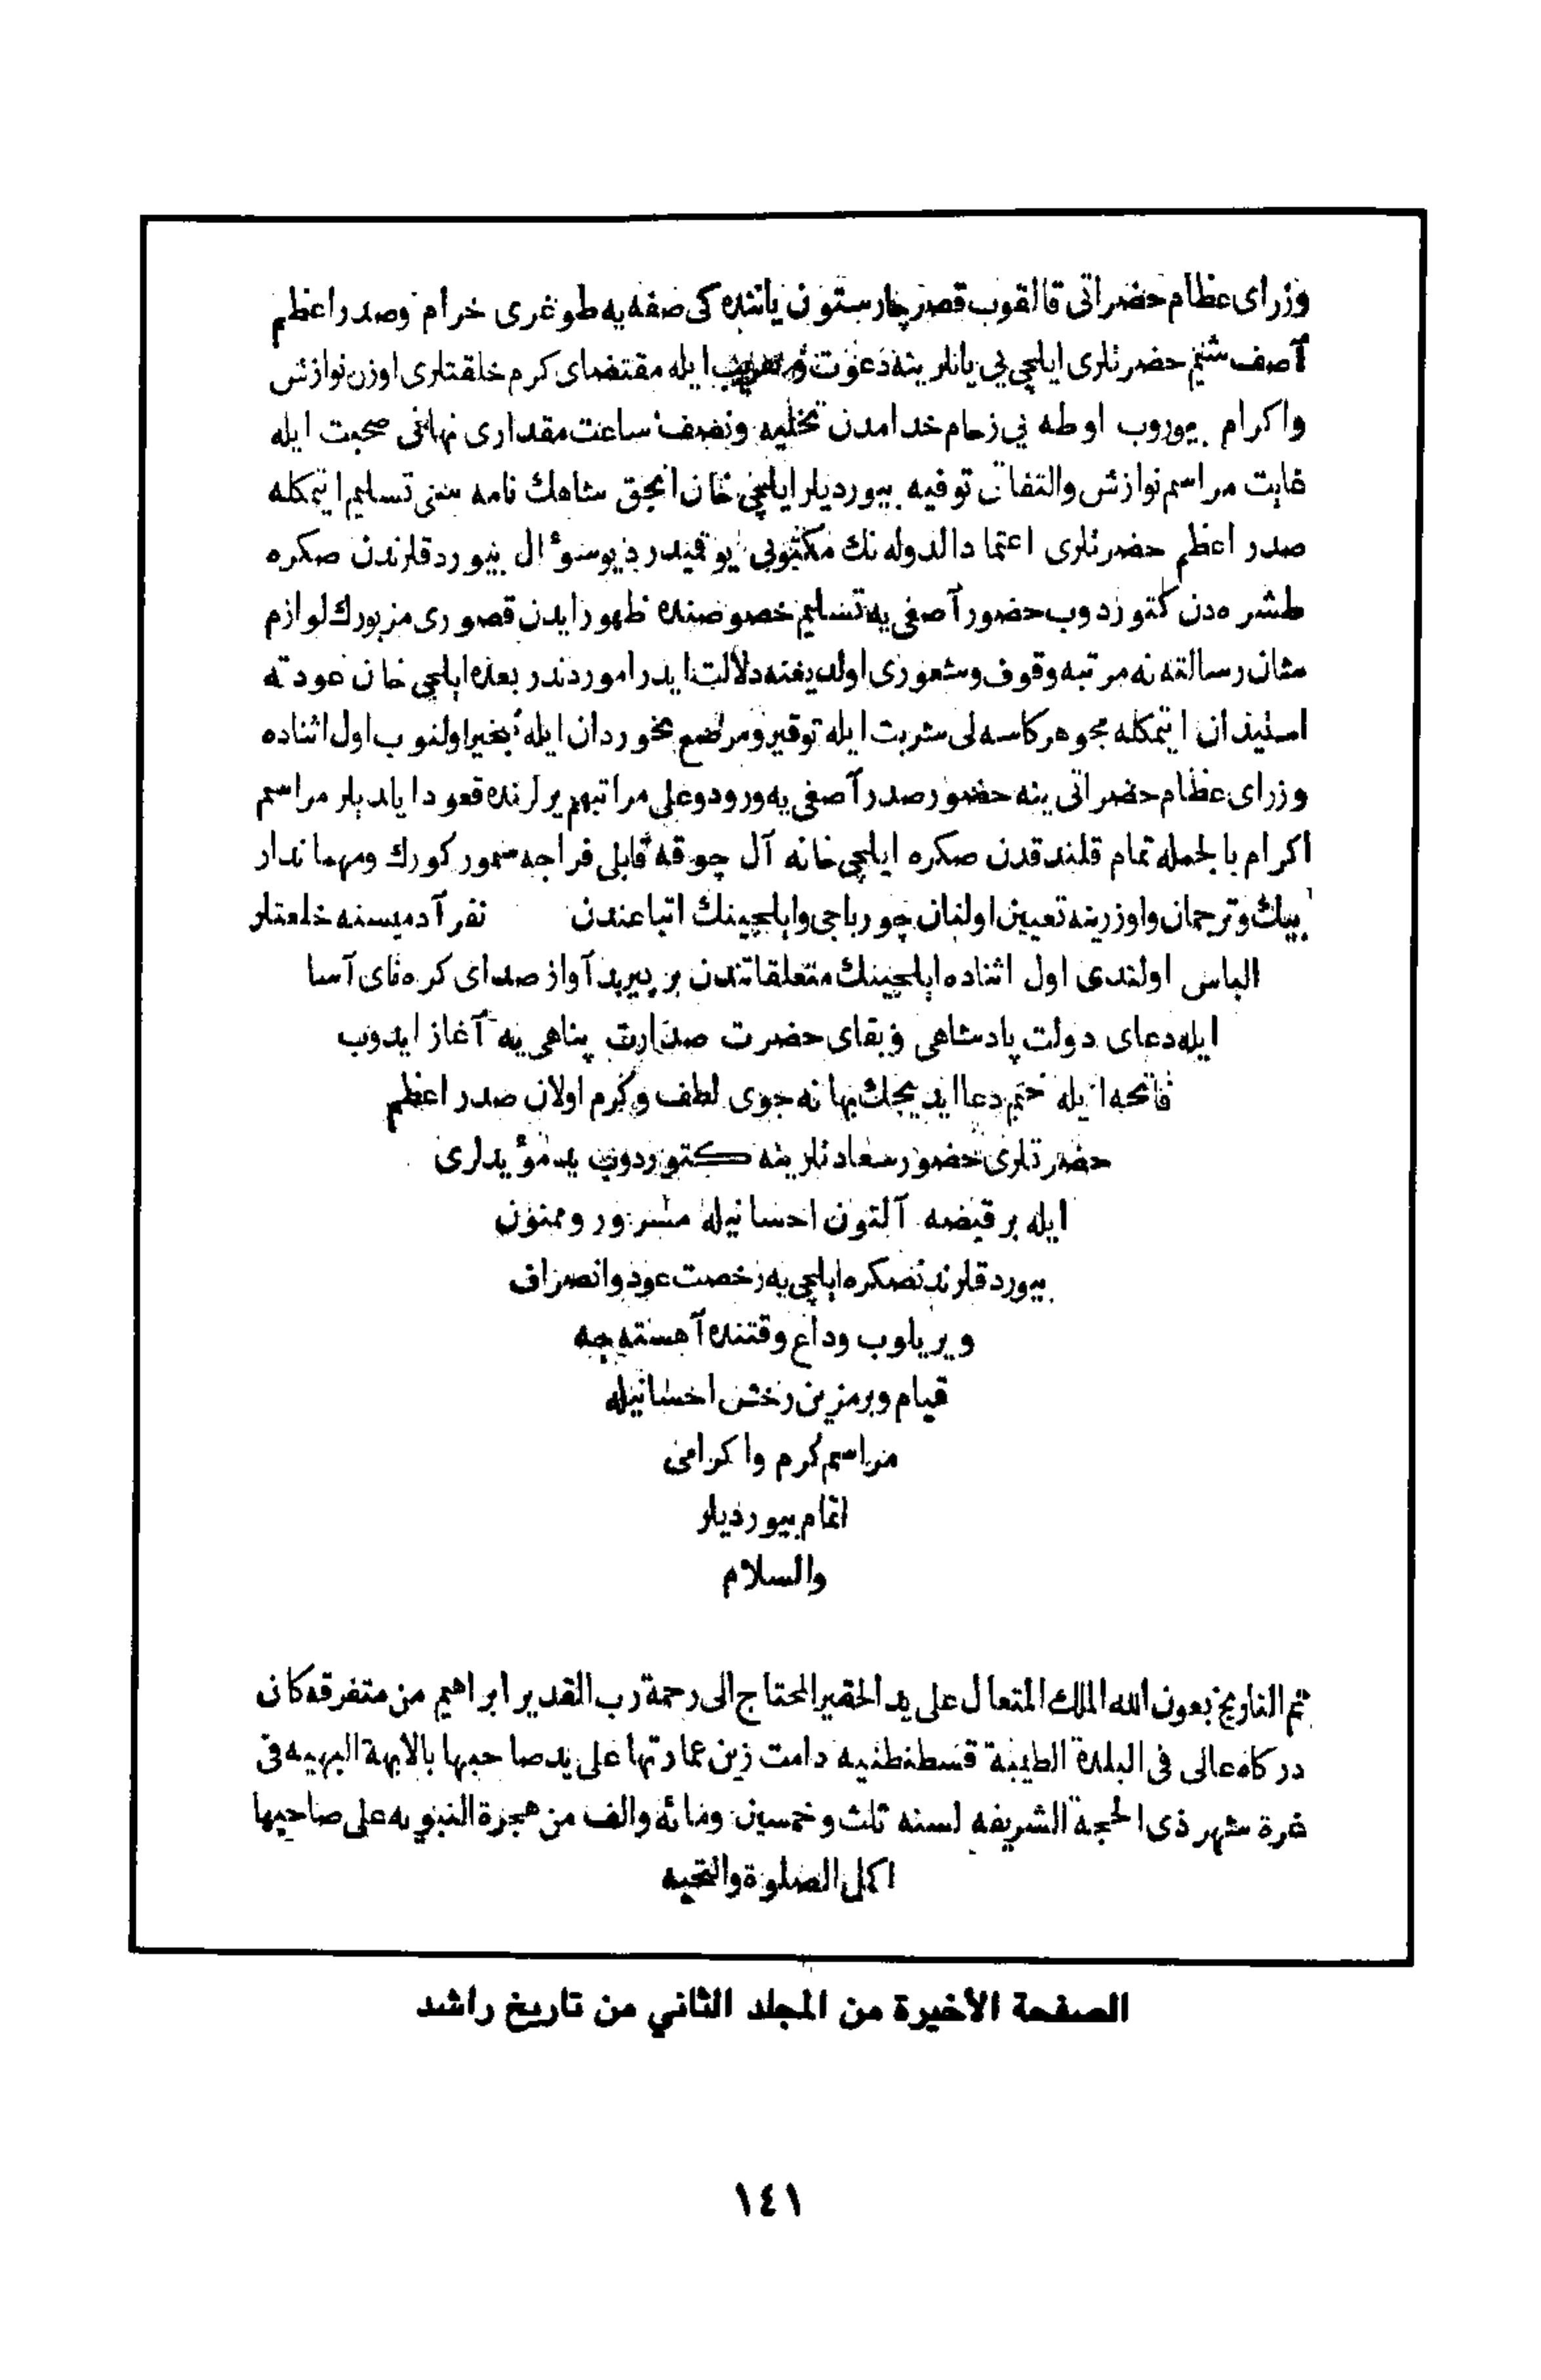 وزرای عظام حضراتی قالقوب قصر چارستون یاننده کی صفه یه طوغری خرام وصدر اعظم
آصف شیم حضرتلری ایلچی یی یانلرینه دعوت و تقریب ایله مقتضای کرم خلقتلری اوزن نوازش
واکرام بیوروب اوطه یی زحام خدامدن تخلیه ونصف ساعت مقداری نهانی صحبت ایله
غایت مراسم نوازش والتفاتی توفیه بیوردیلر ایلچی خان انجق شاهك نامه سنی تسلیم ایتمکله
صدر اعظم حضرتلری اعتماد الدوله نك مکتوبی یوقمیدر دیو سؤال بیوردقلرندن صکره
طشره دن کتوردوب حضور آصفی یه تسلیم خصوصنده ظهور ایدن قصوری مزبورك لوازم
شان رسالته نه مرتبه وقوف وشعوری اولدیغنه دلالت ایدر اموردندر بعده ایلچی خان عودته
استیذان ایتمکله مجوهر کاسه لی شربت ایله توقیر ومرصع بخوردان ایله تبخیر اولنوب اول اثناده
وزرای عظام حضراتی ینه حضور صدر آصفی یه ورود وعلی مراتبهم یرلرنده قعود ایلدیلر مراسم
اکرام بالجمله تمام قلندقدن صکره ایلچی خانه آل چوقه قابلی فراجه سمور کورك ومهماندار
بیك وترجمان واوزرینه تعیین اولنان چورباجی وایلچینك اتباعندن نفر آدمیسنه خلعتلر
الباس اولندی اول اثناده ایلچینك متعلقاتندن بر پیر بد آواز صدای کره نای آسا
ایله دعای دولت پادشاهی وبقای حضرت صدارت پناهی یه آغاز ایدوب
فاتحه ایله ختم دعا ایدیجك بهانه جوی لطف وکرم اولان صدر اعظم
حضرتلری حضور سعادتلرینه کتوردوب ید مؤیدلری
ایله بر قبضه آلتون احسانیله مسرور وممنون
بیوردقلرندنصکره ایلچی یه رخصت عود وانصراف
ویریلوب وداع وقتنده آهسته جه
قیام وبر مزین رخش احسانیله
مراسم کرم واکرامی
اتمام بیوردیلر
والسلام
تم التاریخ بعون الله الملك المتعال علی ید الحقیر المحتاج الی رحمة رب القدیر ابراهیم من متفرقه کان
درکاه عالی فی البلدة الطیبة قسطنطنیه دامت زین عمارتها علی ید صاحبها بالابهة البهیه فی
غرة شهر ذی الحجة الشریفه لسنه ثلث وخمسین ومائه والف من هجرة النبویه علی صاحبها
اکمل الصلوة والتحیه
الصفحة الأخيرة من المجلد الثاني من تاريخ راشد
١٤١